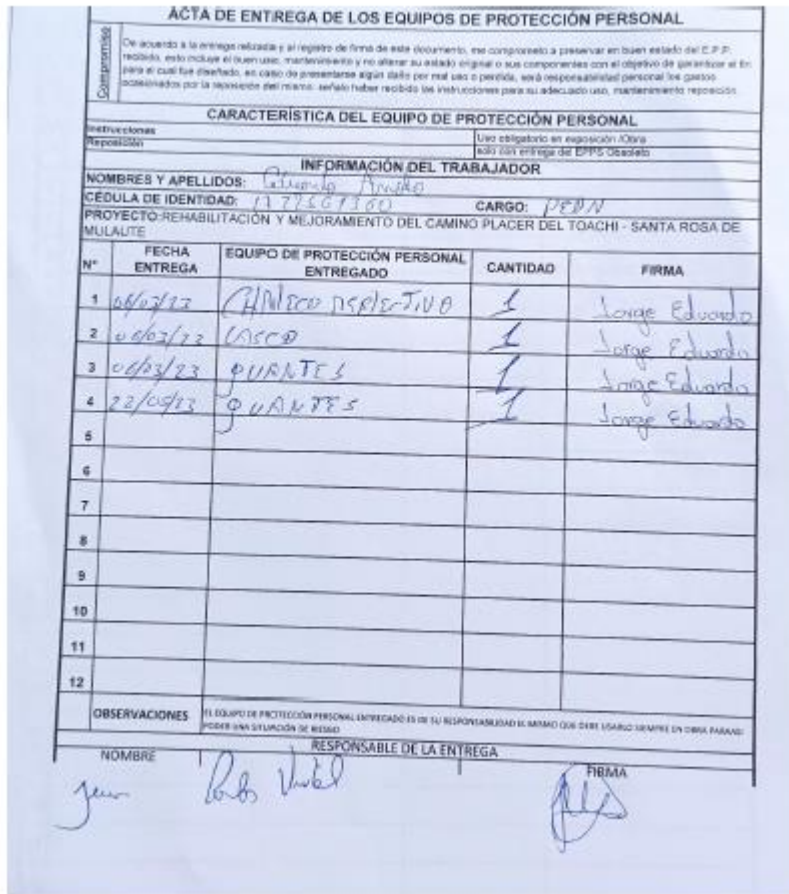 ACTA DE ENTREGA DE LOS EQUIPOS DE PROTECCIÓN PERSONAL
Compromiso
De acuerdo a la entrega relizada y al registro de firma de este documento, me comprometo a preservar en buen estado del E.P.P.
recibido, esto incluye el buen uso, mantenimiento y no alterar su estado original o sus componentes con el objetivo de garantizar el fin
para el cual fue diseñado, en caso de presentarse algún daño por mal uso o perdida, será responsabilidad personal los gastos
ocasionados por la reposición del mismo. señalo haber recibido las instrucciones para su adecuado uso, mantenimiento reposición.
CARACTERÍSTICA DEL EQUIPO DE PROTECCIÓN PERSONAL
Instrucciones Uso obligatorio en exposición /Obra
Reposición solo con entrega del EPPS Obsoleto
INFORMACIÓN DEL TRABAJADOR
NOMBRES Y APELLIDOS: Eduardo
CÉDULA DE IDENTIDAD: CARGO: PEON
PROYECTO:REHABILITACIÓN Y MEJORAMIENTO DEL CAMINO PLACER DEL TOACHI - SANTA ROSA DE
MULAUTE
N° FECHA ENTREGA EQUIPO DE PROTECCIÓN PERSONAL ENTREGADO CANTIDAD FIRMA
1 06/03/23 CHALECO REFLECTIVO 1 Jorge Eduardo
2 06/03/23 CASCO 1 Jorge Eduardo
3 06/03/23 GUANTES 1 Jorge Eduardo
4 22/05/23 GUANTES 1 Jorge Eduardo
5
6
7
8
9
10
11
12
OBSERVACIONES EL EQUIPO DE PROTECCIÓN PERSONAL ENTREGADO ES DE SU RESPONSABILIDAD EL MISMO QUE DEBE USARLO SIEMPRE EN OBRA
PODER UNA SITUACIÓN DE RIESGO
RESPONSABLE DE LA ENTREGA
NOMBRE FIRMA